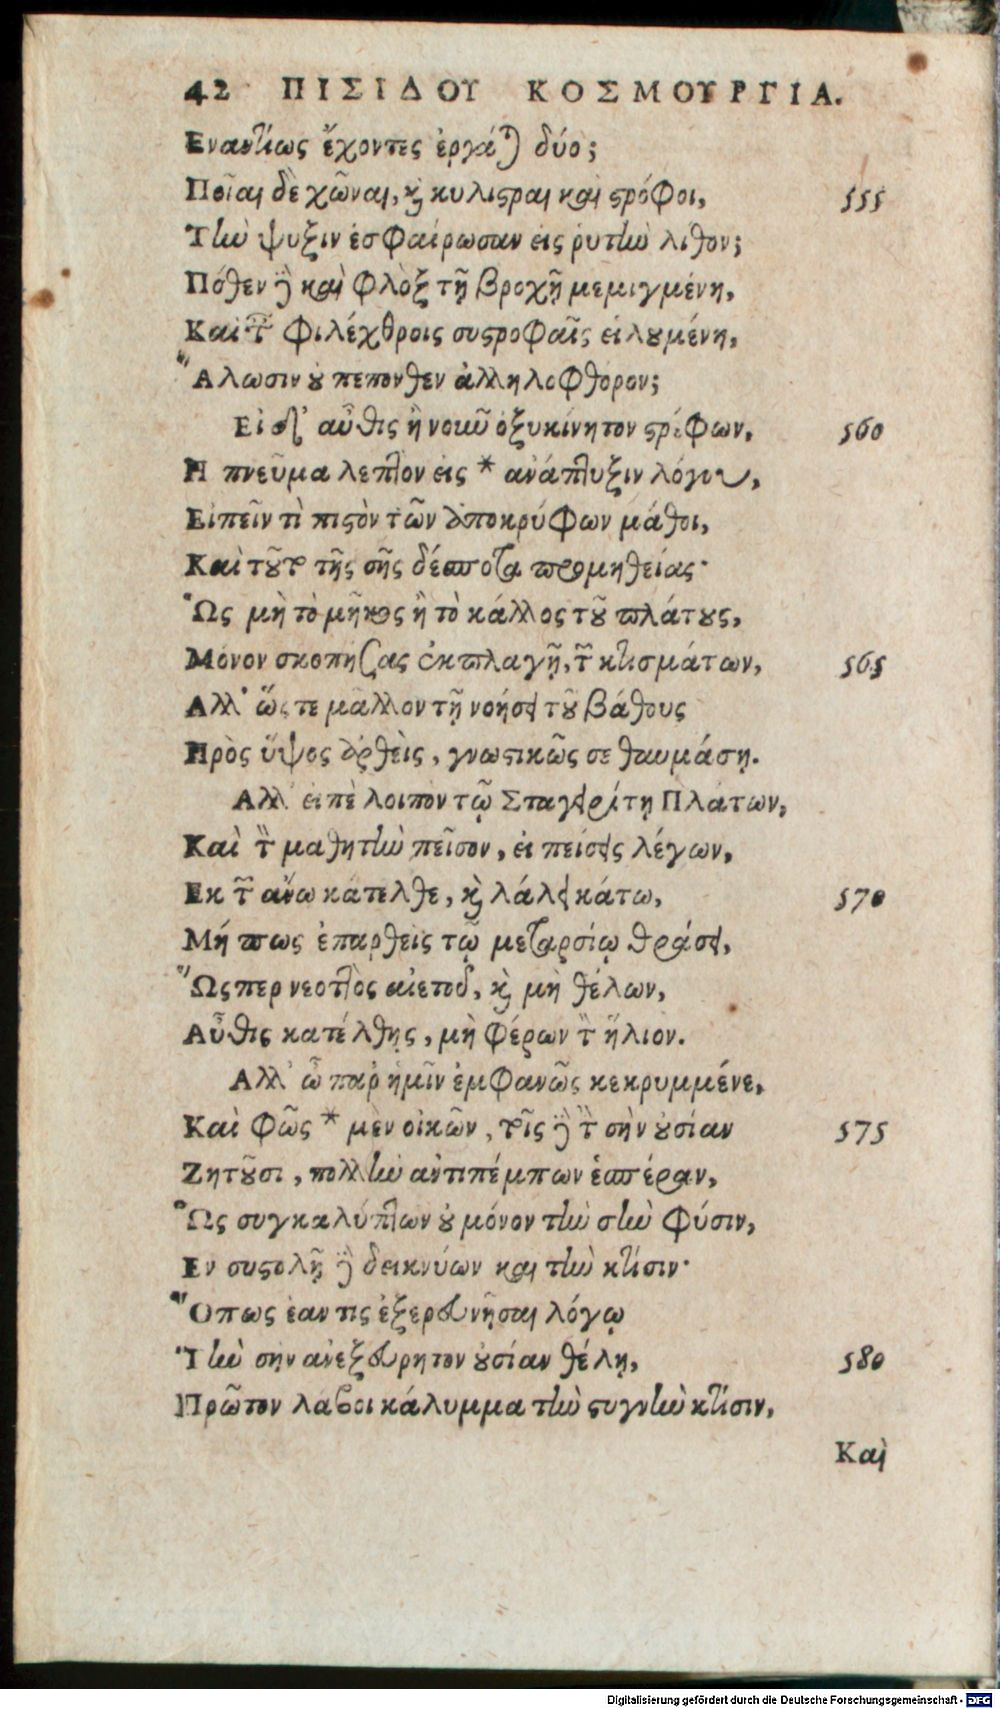 42 ΠΙΣΙΔΟΥ ΚΟΣΜΟΥΡΓΙΑ.
Εναντίως ἔχοντες ἐργάται δύο;
Ποῖαι δὲ χῶναι, καὶ κυλιςραι καὶ ςρόφοι, 555
Τὴν ψυξιν ἐσφαίρωσαν εἰς ῥυτὴν λιθον;
Πόθεν δὲ καὶ φλὸξ τῇ βροχῇ μεμιγμένη,
Καὶ ταῖς φιλέχθροις συςροφαῖς εἰλουμένη,
Ἅλωσιν οὐ πεπονθεν ἀλληλοφθορον;
Εἰ δ' αὖθις ἢ νοῦν ὀξυκίνητον ςρέφων, 560
Η πνεῦμα λεπτὸν εἰς * ἀνάπτυξιν λόγου,
Εἰπεῖν τὶ πιςὸν τῶν ἀποκρύφων μάθοι,
Καὶ τοῦτο τῆς σῆς δέσποτα προμηθείας·
Ὡς μὴ τὸ μῆκος ἢ τὸ κάλλος τοῦ πλάτους,
Μόνον σκοπήσας ἐκπλαγῇ, τῶν κτισμάτων, 565
Αλλ' ὥςτε μᾶλλον τῇ νοήσει τοῦ βάθους
Πρὸς ὕψος ἀρθεὶς, γνωςικῶς σε θαυμάσῃ.
Αλλ' εἰπὲ λοιπὸν τῷ Σταγειρίτῃ Πλάτων,
Καὶ τὸν μαθητὴν πεῖσον, εἰ πείσεις λέγων,
Εκ τῶν ἄνω κάτελθε, καὶ λάλει κάτω, 570
Μή πως ἐπαρθεὶς τῷ μεταρσίῳ θράσει,
Ὥςπερ νεοττὸς αἰετοῦ, καὶ μὴ θέλων,
Αὖθις κατέλθῃς, μὴ φέρων τὸν ἥλιον.
Αλλ' ὦ παρ' ἡμῖν ἐμφανῶς κεκρυμμένε,
Καὶ φῶς * μὲν οἰκῶν, τοῖς δὲ τὴν σὴν οὐσίαν 575
Ζητοῦσι, πολλὴν ἀντιπέμπων ἑσπέραν,
Ὡς συγκαλύπτων οὐ μόνον τὴν σὴν φύσιν,
Εν συςολῇ δὲ δεικνύων καὶ τὴν κτίσιν·
Ὅπως ἐάν τις ἐξερευνῆσαι λόγῳ
Τὴν σὴν ἀνεξεύρητον οὐσίαν θέλῃ, 580
Πρῶτον λάβοι κάλυμμα τὴν ςυγνὴν κτίσιν,
Καὶ
Digitalisierung gefördert durch die Deutsche Forschungsgemeinschaft - DFG